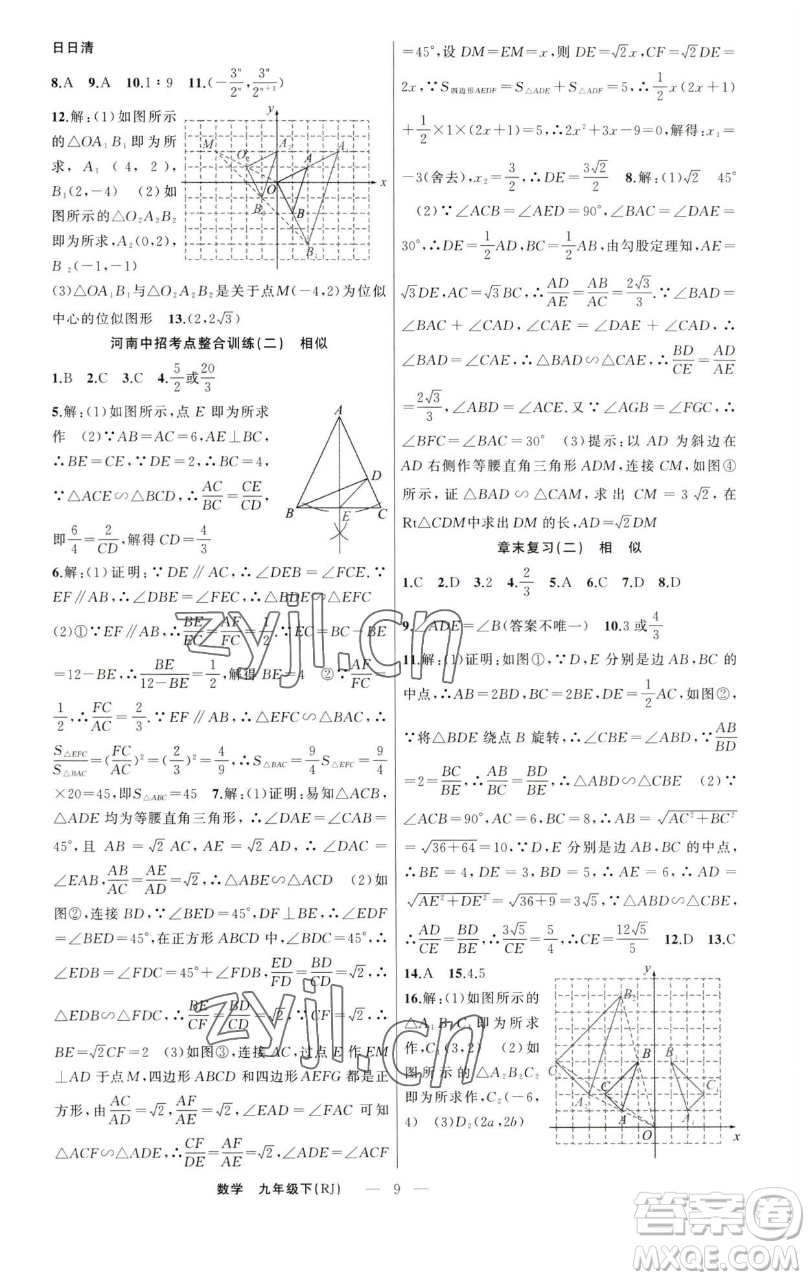 日日清
8.A 9.A 10.1∶9 11.(-3ⁿ/2ⁿ,3ⁿ/2ⁿ⁺¹)
12.解:(1)如图所示
的△OA₁B₁即为所
求,A₁(4,2),
B₁(2,-4) (2)如
图所示的△O₂A₂B₂
即为所求,A₂(0,2),
B₂(-1,-1)
(3)△OA₁B₁与△O₂A₂B₂是关于点M(-4,2)为位似
中心的位似图形 13.(2,2√3)
河南中招考点整合训练(二) 相似
1.B 2.C 3.C 4.5/2或20/3
5.解:(1)如图所示,点E即为所求
作 (2)∵AB=AC=6,AE⊥BC,
∴BE=CE,∵DC=2,∴BC=4,
∵△ACE∽△BCD,∴AC/BC=CE/CD,
即6/4=2/CD,解得:CD=4/3
6.解:(1)证明:∵DE∥AC,∴∠DEB=∠FCE.∵
EF∥AB,∴∠DBE=∠FEC,∴△BDE∽△EFC
(2)①∵EF∥AB,∴BE/EC=AF/FC=1/2.∵EC=BC-BE
=12-BE,∴BE/12-BE=1/2,解得BE=4 ②∵AF/FC=
1/2,∴FC/AC=2/3.∵EF∥AB,∴△EFC∽△BAC,∴
S△EFC/S△BAC=(FC/AC)²=(2/3)²=4/9,∴S△BAC=9/4S△EFC=9/4
×20=45,即S△ABC=45 7.解:(1)证明:易知△ACB,
△ADE均为等腰直角三角形,∴∠DAE=∠CAB=
45°,且AB=√2AC,AE=√2AD,∴∠DAC=
∠EAB,AB/AC=AE/AD,∴△ABE∽△ACD (2)如
图②,连接BD,∵∠BED=45°,DF⊥BE,∴∠EDF
=∠BED=45°,在正方形ABCD中,∠BDC=45°,∴
∠EDB=∠FDC=45°-∠BDF,∵ED/FD=BD/CD=√2,∴
△EDB∽△FDC,∴BE/CF=BD/CD=√2,∴
BE=√2CF=2 (3)如图③,连接AC,过点E作EM
⊥AD于点M,四边形ABCD和四边形AEFG都是正
方形,由AC/AD=√2,AF/AE=√2,∠DAE=∠FAC可知
△ACF∽△ADE,∴CF/DE=AF/AE=√2,∴∠ADE=∠ACF
=45°,设DM=EM=x,则DE=√2x,CF=√2DE=
2x,∵S四边形AEDF=S△ADE+S△ADF=5,∴1/2x(2x+1)
+1/2×1×(2x+1)=5,∴2x²+3x-9=0,解得:x₁=
-3(舍去),x₂=3/2,∴DE=3√2/2 8.解:(1)√2 45°
(2)∵∠ACB=∠AED=90°,∠BAC=∠DAE=
30°,∴DE=1/2AD,BC=1/2AB,由勾股定理知,AE=
√3DE,AC=√3BC,∴AD/AE=AB/AC=2√3/3,∵∠BAD=
∠BAC+∠CAD,∠CAE=∠CAD+∠DAE,∴
∠BAD=∠CAE,∴△BAD∽△CAE,∴BD/CE=AD/AE
=2√3/3,∠ABD=∠ACE.又∵∠AGB=∠FGC,∴
∠BFC=∠BAC=30° (3)提示:以AD为斜边在
AD右侧作等腰直角三角形ADM,连接CM,如图④
所示,证△BAD∽△CAM,求出CM=3√2,在
Rt△CDM中求出DM的长,AD=√2DM
章末复习(二) 相 似
1.C 2.D 3.2 4.2/3 5.A 6.C 7.D 8.D
9.∠ADE=∠B(答案不唯一) 10.3或4/3
11.解:(1)证明:如图①,∵D,E分别是边AB,BC的
中点,∴AB=2BD,BC=2BE,DE=1/2AC,如图②,
∵将△BDE绕点B旋转,∴∠CBE=∠ABD,∵AB/BD
=2=BC/BE,∴BD/BE=AB/BC,∴△ABD∽△CBE (2)∵
∠ACB=90°,AC=6,BC=8,∴AB=√AC²+BC²
=√36+64=10,∵D,E分别是边AB,BC的中点,
∴BE=4,DE=3,BD=5,如图③,∴AD=
√AE²+DE²=√36+9=3√5,∵△ABD∽△CBE,∴
AD/CE=BD/BE,∴3√5/CE=5/4,∴CE=12√5/5 12.D 13.C
14.A 15.4.5
16.解:(1)如图所示的
△A₁B₁C₁即为所求
作,C₁(3,2) (2)如
图所示的△A₂B₂C₂
即为所求作,C₂(-6,
4) (3)D₂(2a,2b)
数学 九年级下(RJ) — 9 —
zyjl.cn
zyjl.cn
答案圈
MXQE.COM